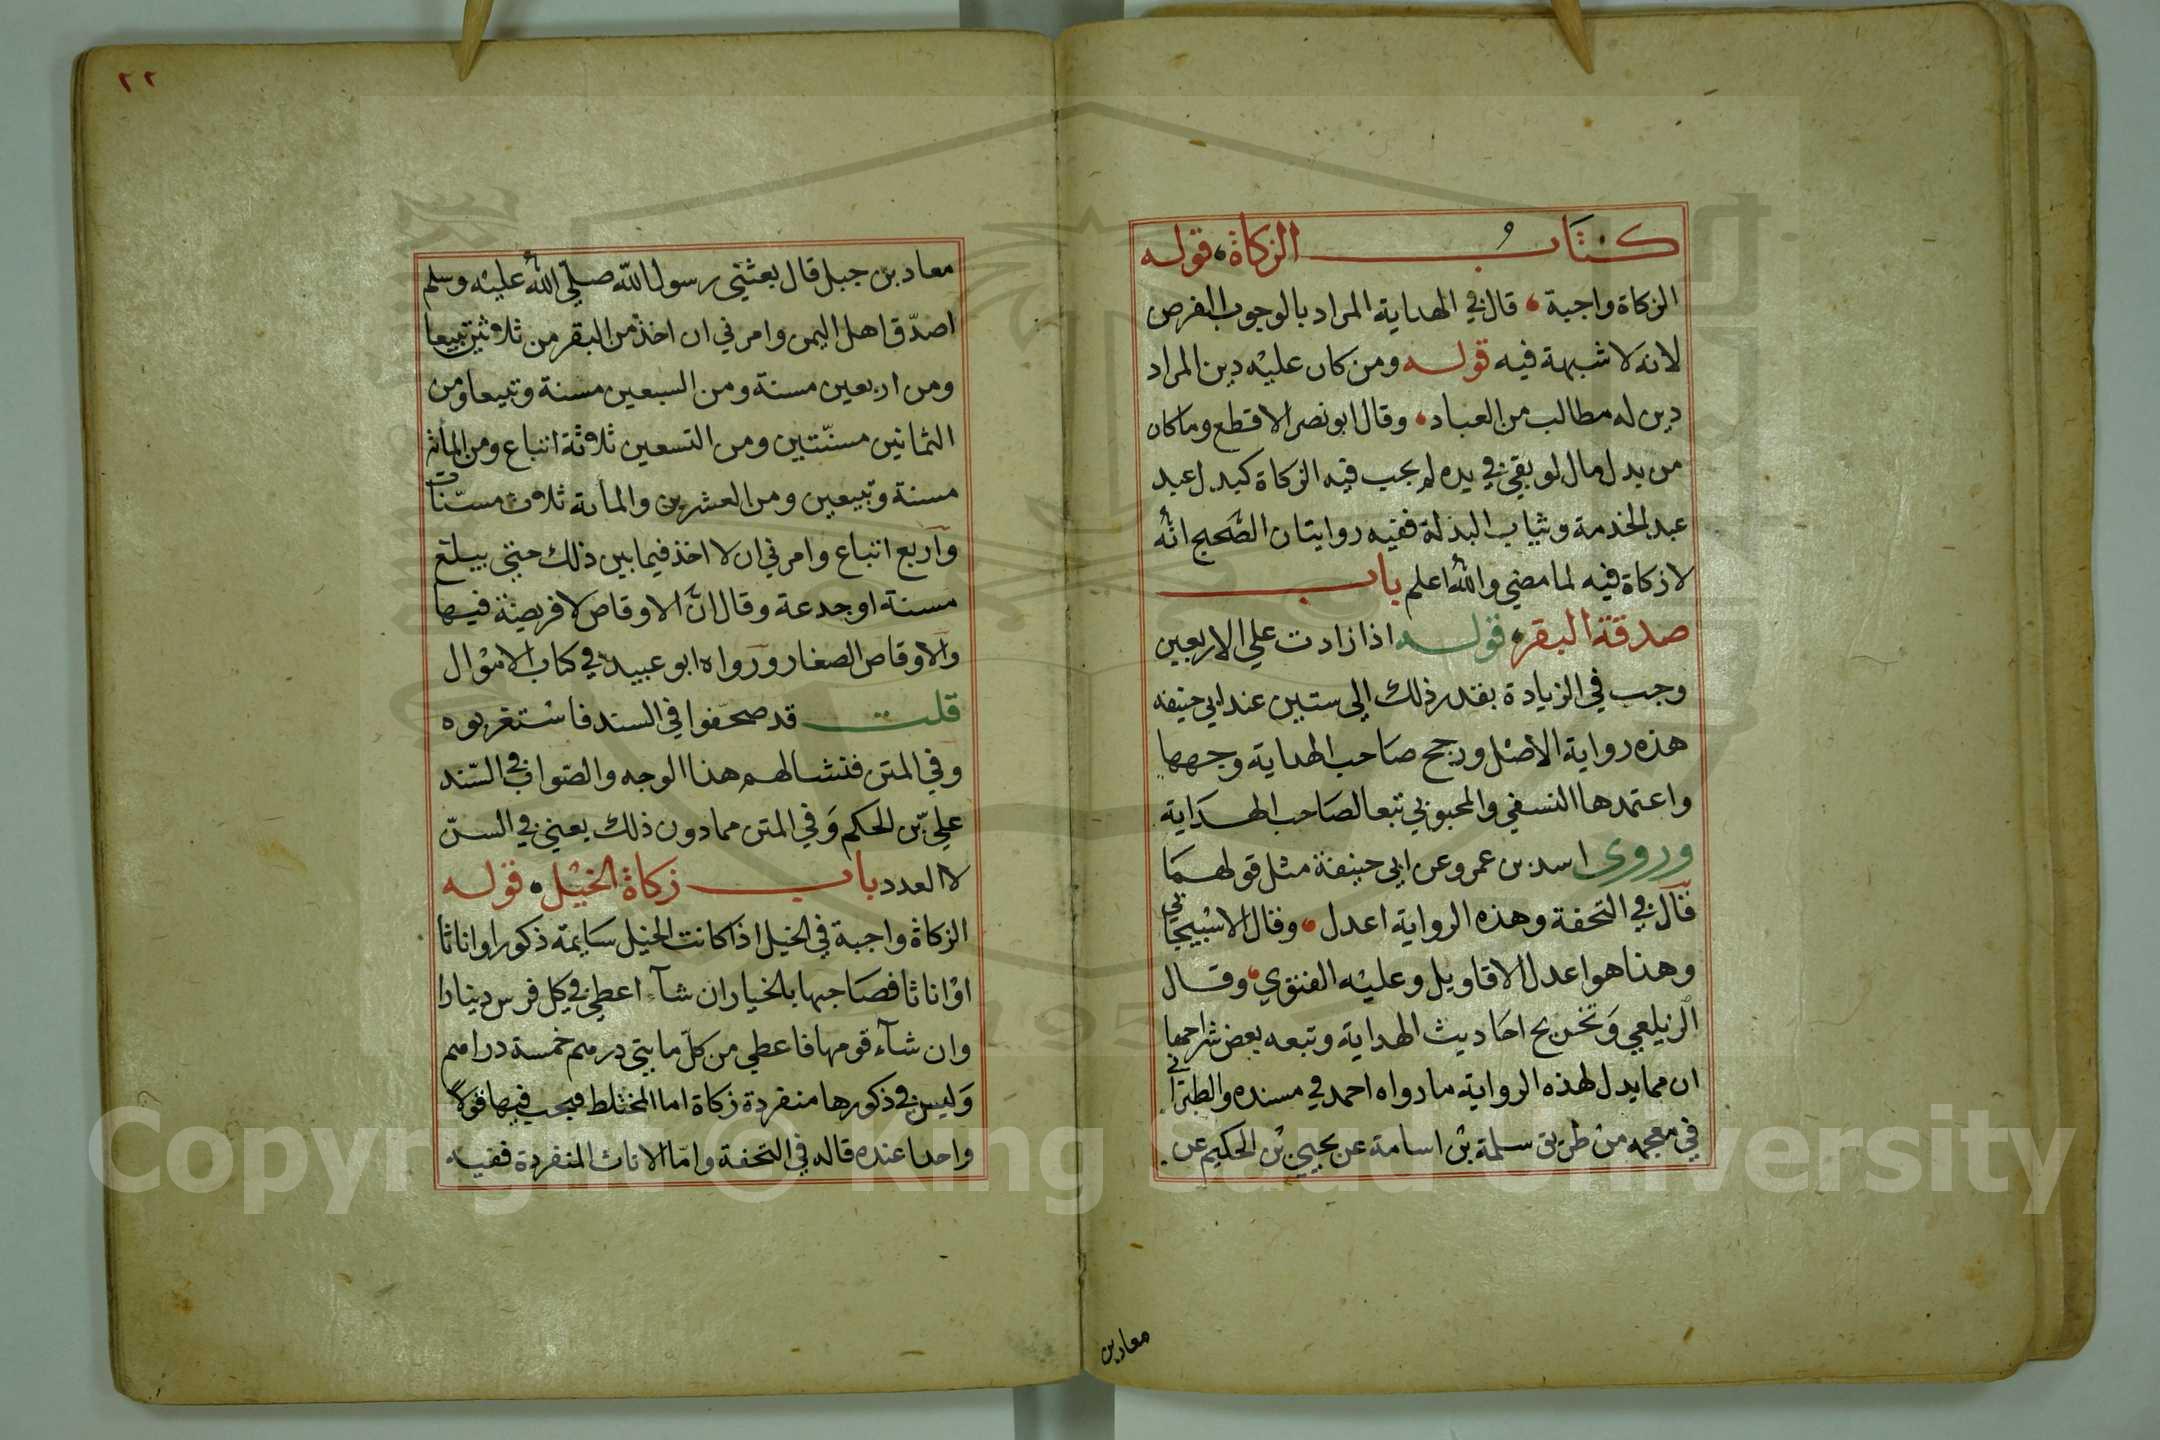 كتاب الزكاة قوله
الزكاة واجبة قال في الهداية المراد بالوجوب الفرض
لانه لا شبهة فيه قوله ومن كان عليه دين المراد
دين له مطالب من العباد وقال ابو نصر الاقطع وما كان
من بدل مال لو بقي في يده لم يجب فيه الزكاة كبدل عبد
عبد الخدمة وثياب البذلة ففيه روايتان الصحيح انه
لا زكاة فيه لما مضي والله اعلم باب
صدقة البقر قوله اذا زادت علي الاربعين
وجب في الزيادة بقدر ذلك الي ستين عند ابي حنيفه
هذه رواية الاصل ورجح صاحب الهداية وجهها
واعتمدها النسفي والمحبوبي تبعا لصاحب الهداية
وروي اسد بن عمرو عن ابي حنيفة مثل قولهما
قال في التحفة وهذه الرواية اعدل وقال الاسبيجابي
وهذا هو اعدل الاقاويل وعليه الفتوي وقال
الزيلعي وتخريج احاديث الهداية وتبعه بعض شراحها
ان مما يدل لهذه الرواية ما رواه احمد في مسنده والطبراني
في معجمه من طريق سلمة بن اسامة عن يحيي بن الحكيم عن
معاد بن
٢٢
معاد بن جبل قال بعثني رسول الله صلي الله عليه وسلم
اصدق اهل اليمن وامرني ان اخذ من البقر من ثلاثين تبيعا
ومن اربعين مسنة ومن السبعين مسنة وتبيعا ومن
الثمانين مسنتين ومن التسعين ثلاثة اتباع ومن المأئة
مسنة وتبيعين ومن العشرين والمائة ثلاث مسنات
واربع اتباع وامرني ان لا اخذ فيما بين ذلك حتي يبلغ
مسنة او جدعة وقال ان الاوقاص لا فريضة فيها
والاوقاص الصغار ورواه ابو عبيد في كتاب الاموال
قلت قد صحفوا في السند فاستغربوه
وفي المتن فنشا لهم هذا الوجه والصواب في السند
علي بن الحكم وفي المتن مما دون ذلك يعني في السن
لا العدد باب زكاة الخيل قوله
الزكاة واجبة في الخيل اذا كانت الخيل سايمة ذكورا واناثا
او اناثا فصاحبها بالخيار ان شاء اعطي في كل فرس دينارا
وان شاء قومها فاعطي من كل مايتي درهم خمسة دراهم
وليس في ذكورها منفردة زكاة اما المختلط فيجب فيها قولا
واحدا عنده قاله في التحفة واما الاناث المنفردة ففيه
Copyright © King Saud University